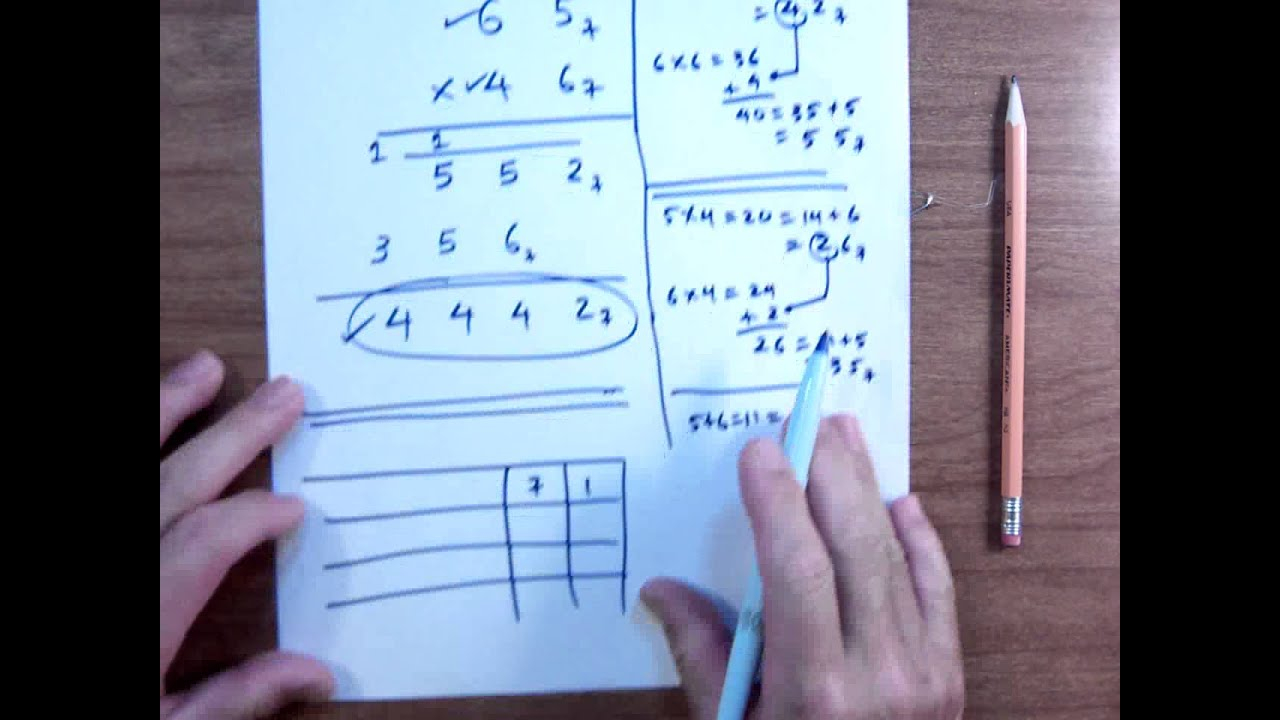 ✓6 5₇
× ✓4 6₇
1 1
5 5 2₇
3 5 6₇
✓4 4 4 2₇
7 1
= 4, 2₇
6 × 6 = 36
+ 4
40 = 35 + 5
= 5 5₇
5 × 4 = 20 = 14 + 6
= 2, 6₇
6 × 4 = 24
+ 2
26 = + 5
3 5₇
5 + 6 = 11 =